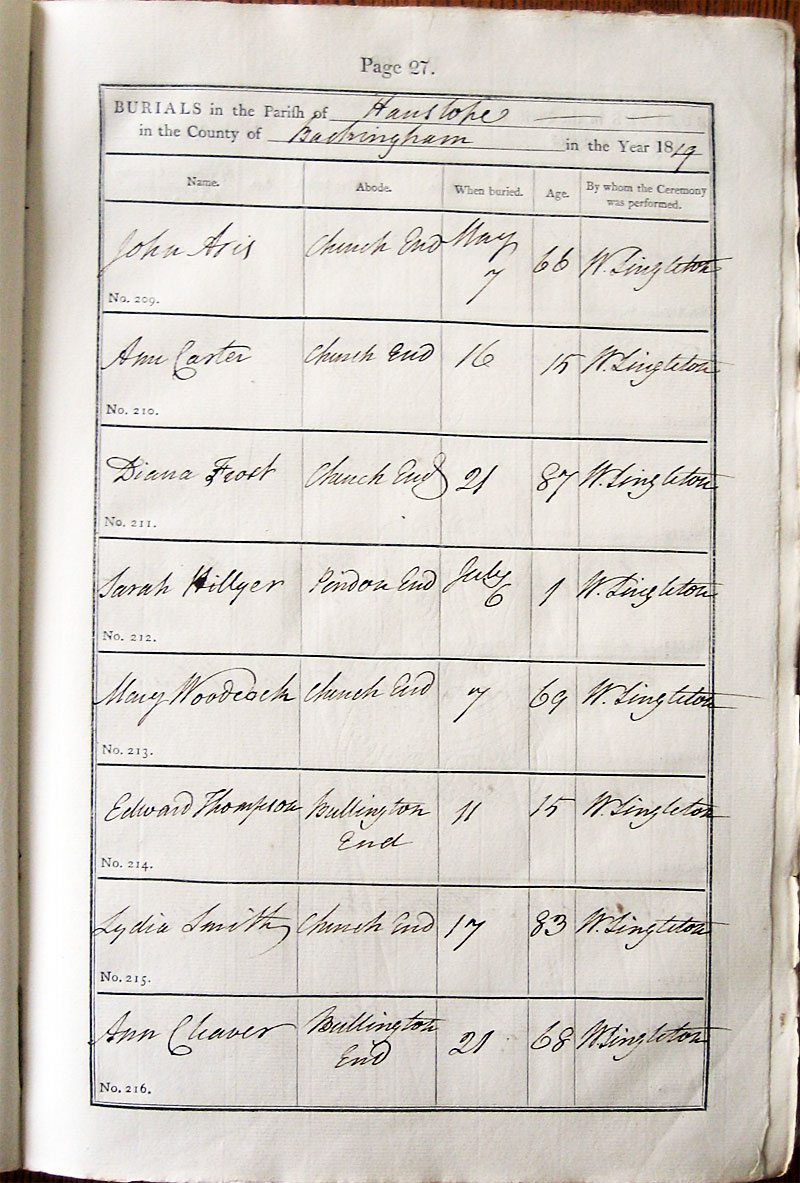 Page 27.
BURIALS in the Parish of Hanslope
in the County of Buckingham in the Year 1819
Name. Abode. When buried. Age. By whom the Ceremony was performed.
John Aris Church End May 7 66 W. Singleton
No. 209.
Ann Carter Church End 16 15 W. Singleton
No. 210.
Diana Frost Church End 21 87 W. Singleton
No. 211.
Sarah Hillyer Pindon End July 6 1 W. Singleton
No. 212.
Mary Woodcock Church End 7 69 W. Singleton
No. 213.
Edward Thompson Bullington End 11 15 W. Singleton
No. 214.
Lydia Smith Church End 17 83 W. Singleton
No. 215.
Ann Cleaver Bullington End 21 68 W. Singleton
No. 216.